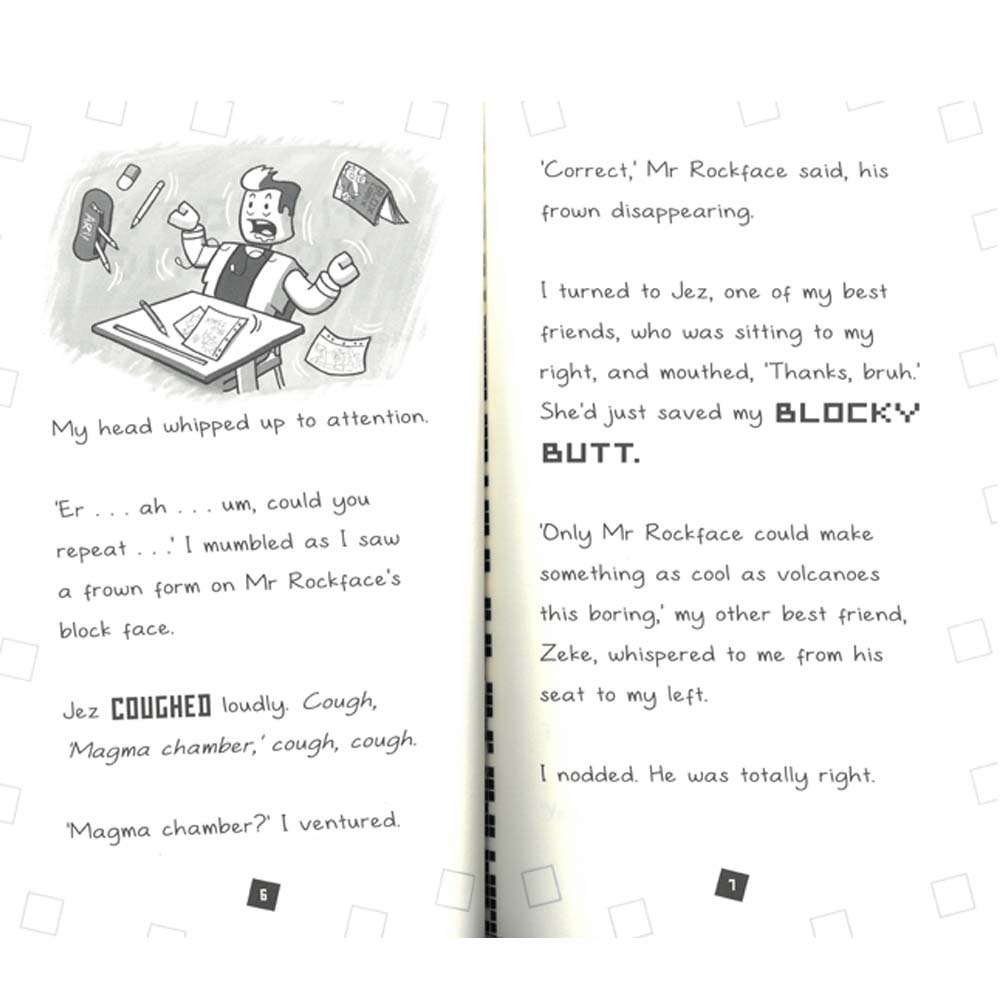 ARI!
My head whipped up to attention.
'Er . . . ah . . . um, could you
repeat . . .' I mumbled as I saw
a frown form on Mr Rockface's
block face.
Jez COUGHED loudly. Cough,
'Magma chamber,' cough, cough.
'Magma chamber?' I ventured.
6
'Correct,' Mr Rockface said, his
frown disappearing.
I turned to Jez, one of my best
friends, who was sitting to my
right, and mouthed, 'Thanks, bruh.'
She'd just saved my BLOCKY
BUTT.
'Only Mr Rockface could make
something as cool as volcanoes
this boring,' my other best friend,
Zeke, whispered to me from his
seat to my left.
I nodded. He was totally right.
7